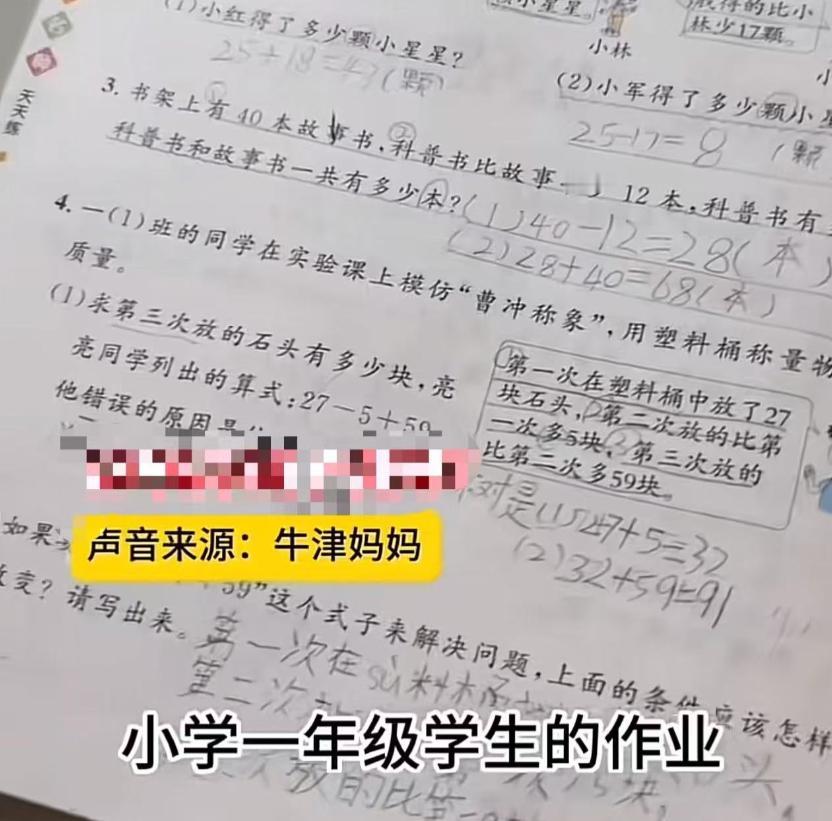 (1)小红得了多少颗小星星?
25+18=43(颗)
小林
获得的比小
林少17颗。
(2)小军得了多少颗小星
25-17=8(颗
天天练
3. 书架上有40本故事书,科普书比故事 12本,科普书有
科普书和故事书一共有多少本?
(1)40-12=28(本)
(2)28+40=68(本)
4. 一(1)班的同学在实验课上模仿“曹冲称象”,用塑料桶称量物
质量。
(1)求第三次放的石头有多少块,亮
亮同学列出的算式:27-5+59
他错误的原因是
第一次在塑料桶中放了27
块石头,第二次放的比第
一次多5块,第三次放的
比第二次多59块。
对是(1)27+5=32
(2)32+59=91
声音来源:牛津妈妈
如果
59”这个式子来解决问题,上面的条件应该怎样
改变?请写出来。
第一次在sù料桶
第二次
小学一年级学生的作业
块,头
放的比第